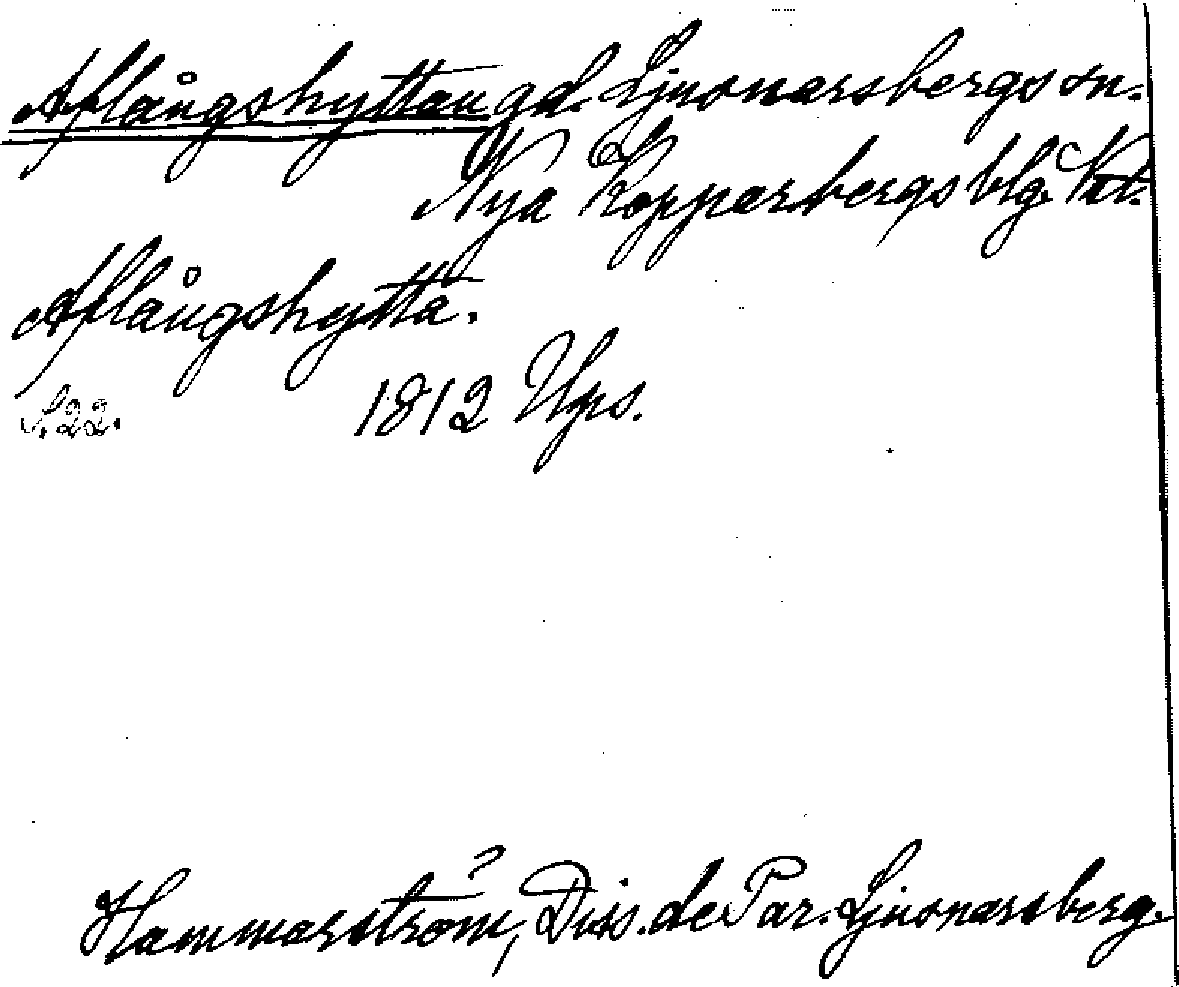 Aflångshyttan gd. Ljusnarsbergs sn.
Nya Kopparbergs blg. Vstm.
Aflångshytta.
S. 22. 1812 Ups.
Hammarström, Diss. de Par. Ljusnarsberg.